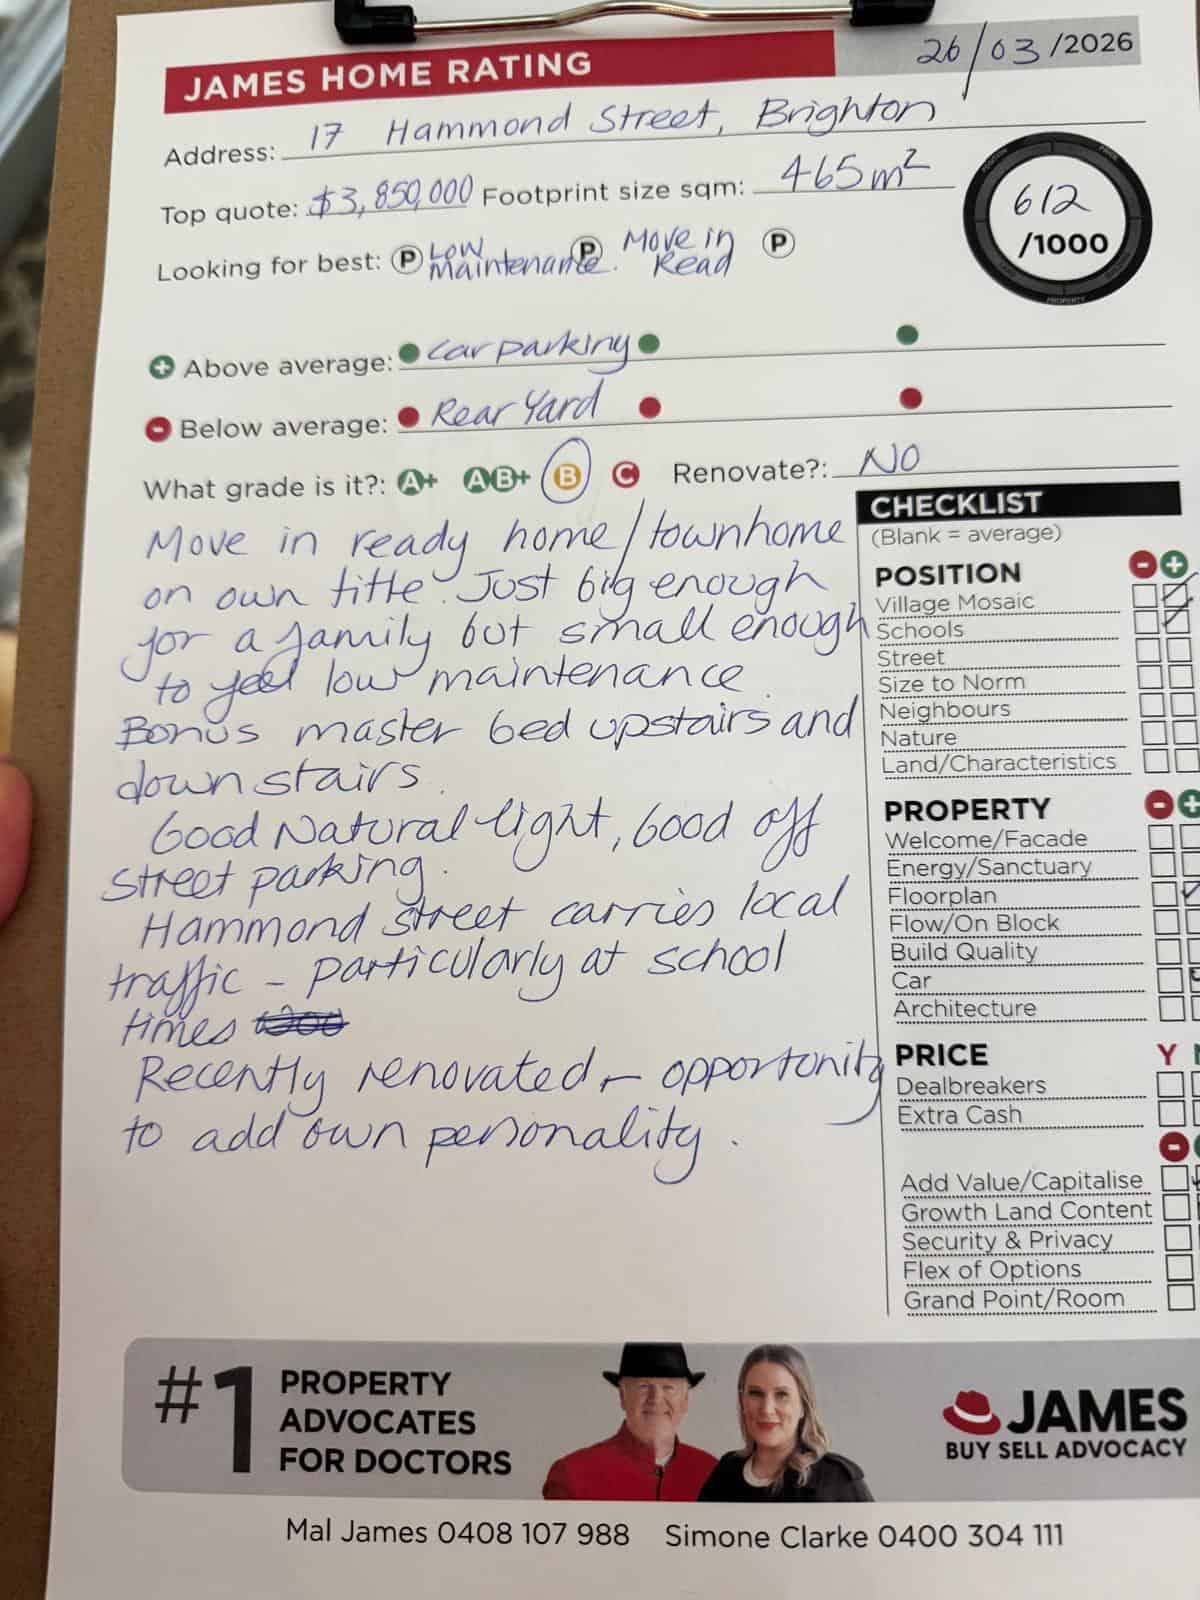 JAMES HOME RATING
26/03/2026
Address: 17 Hammond Street, Brighton
Top quote: $3,850,000 Footprint size sqm: 465m²
612
/1000
PROPERTY
Looking for best: P Low Maintenance. P Move in Read P
+ Above average: car parking
- Below average: Rear Yard
What grade is it?: A+ AB+ B C Renovate?: NO
Move in ready home/townhome
on own title. Just big enough
for a family but small enough
to feel low maintenance.
Bonus master bed upstairs and
downstairs.
Good Natural light, Good off
street parking.
Hammond Street carries local
traffic - particularly at school
times
Recently renovated - opportunity
to add own personality.
CHECKLIST
(Blank = average)
POSITION - +
Village Mosaic
Schools
Street
Size to Norm
Neighbours
Nature
Land/Characteristics
PROPERTY - +
Welcome/Facade
Energy/Sanctuary
Floorplan
Flow/On Block
Build Quality
Car
Architecture
PRICE Y
Dealbreakers
Extra Cash
-
Add Value/Capitalise
Growth Land Content
Security & Privacy
Flex of Options
Grand Point/Room
#1 PROPERTY
ADVOCATES
FOR DOCTORS
JAMES
BUY SELL ADVOCACY
Mal James 0408 107 988 Simone Clarke 0400 304 111